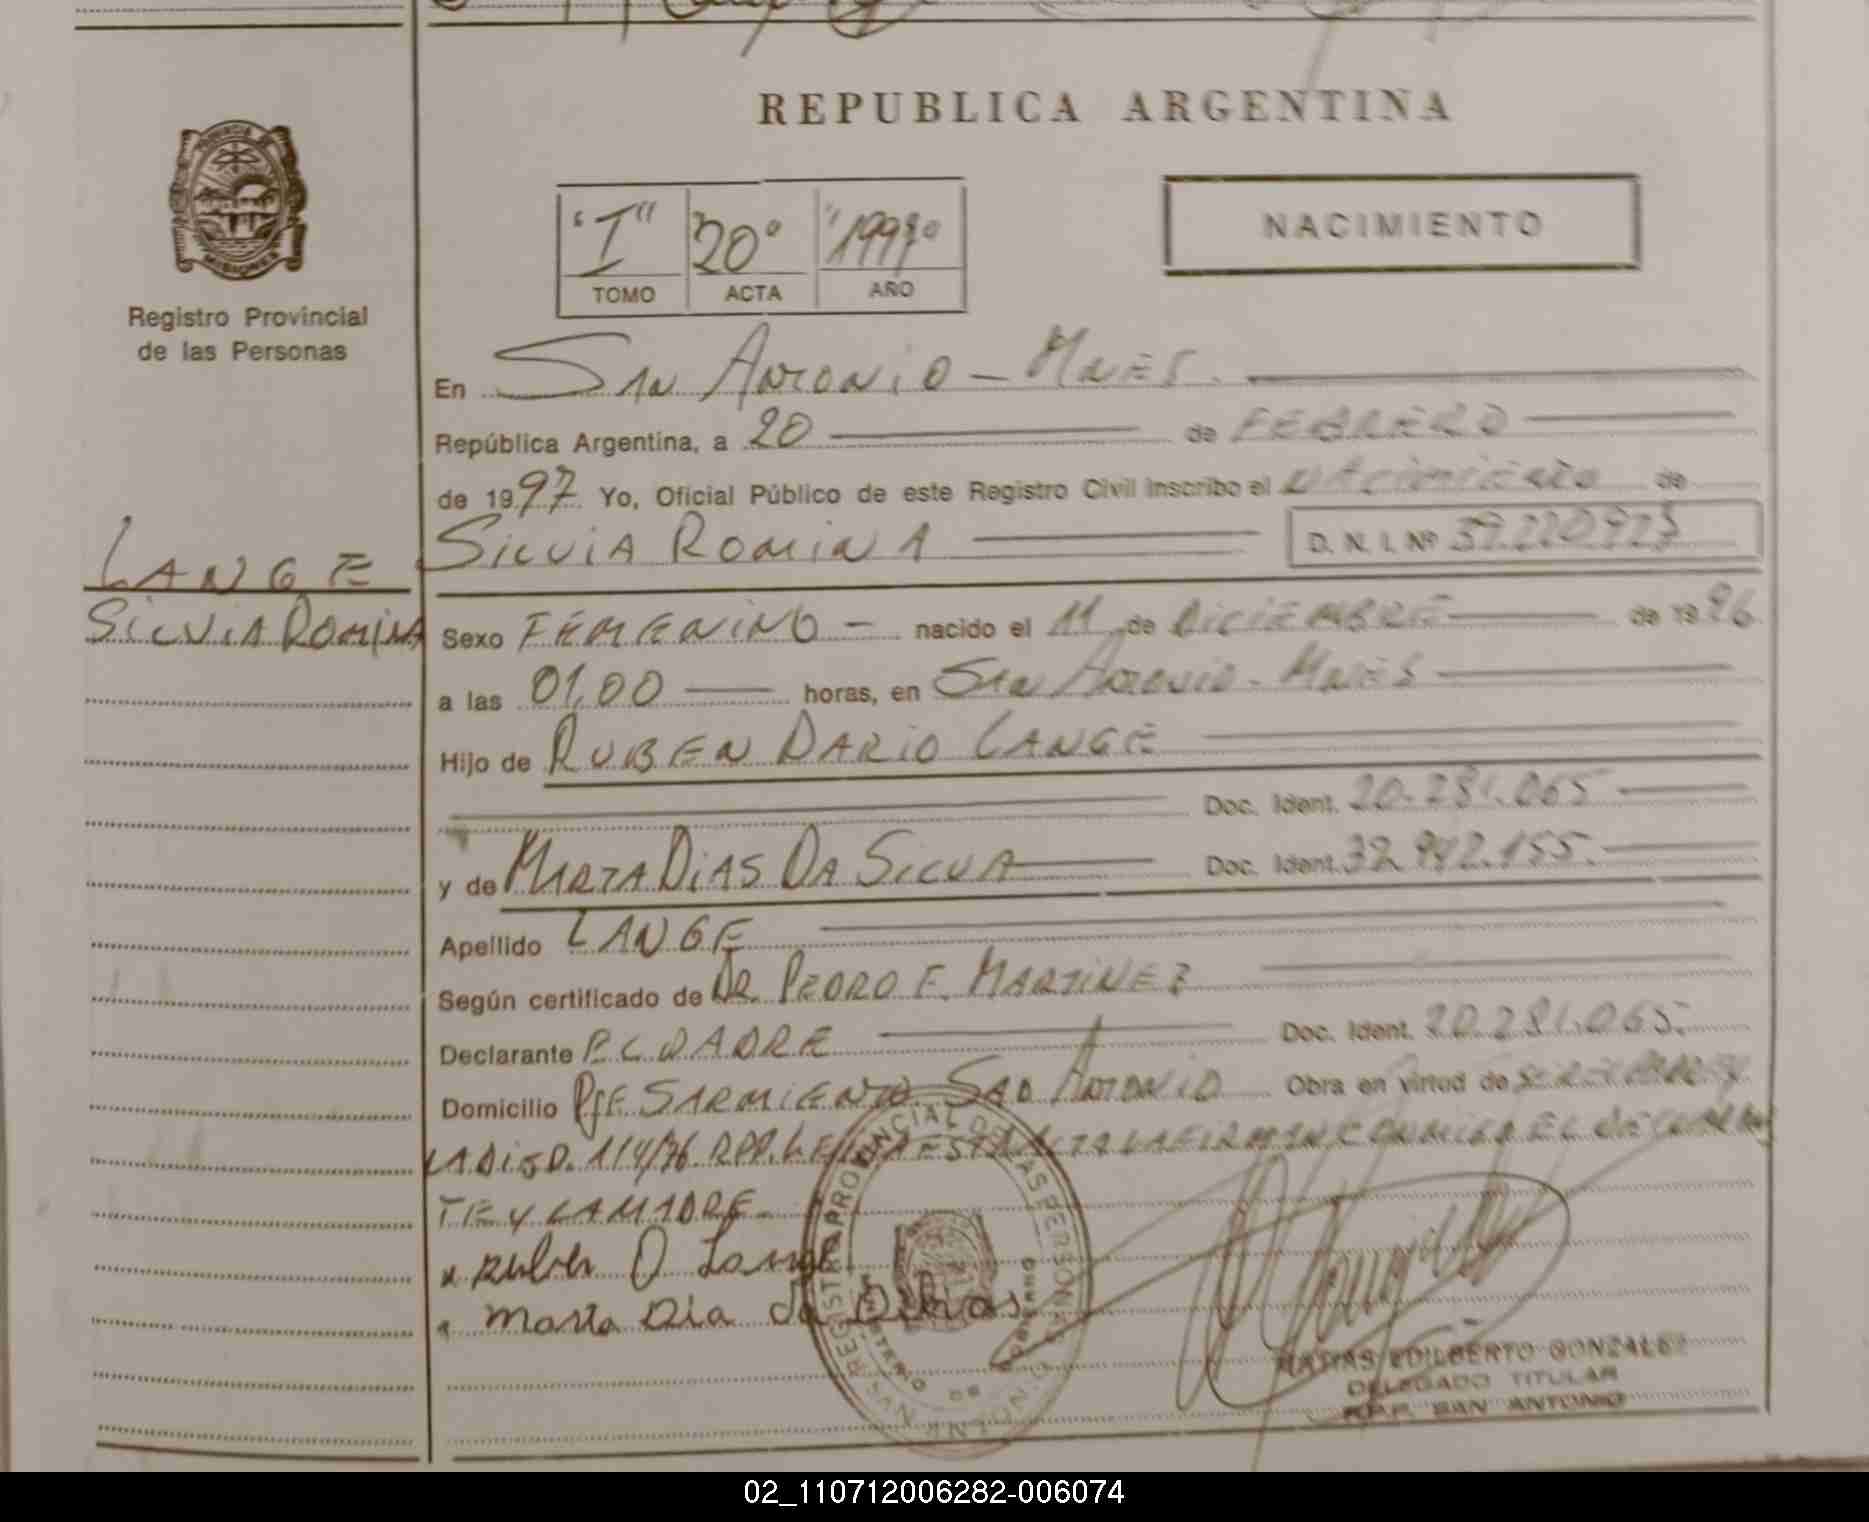 REPUBLICA ARGENTINA
PROVINCIA DE
MISIONES
Registro Provincial
de las Personas
"I" 20° "1997"
TOMO ACTA AÑO
NACIMIENTO
En San Antonio - Mnes.
República Argentina, a 20 de FEBRERO
de 1997 Yo, Oficial Público de este Registro Civil inscribo el nacimiento de
LANGE
SILVIA ROMINA
SILVIA ROMINA D. N. I. Nº
Sexo FEMENINO - nacido el 11 de DICIEMBRE de 1996
a las 01,00 horas, en San Antonio - Mnes
Hijo de RUBEN DARIO LANGE
Doc. Ident. 20.281.065
y de MARTA DIAS DA SILVA Doc. Ident. 32.942.155.
Apellido LANGE
Según certificado de DR. PEDRO E. MARTINEZ
Declarante EL PADRE Doc. Ident. 20.281.065.
Domicilio PJE SARMIENTO San Antonio Obra en virtud de
DISP. 114/76. RPP. LEIDA ESTA ACTA LA FIRMAN CONMIGO EL DECLARAN
TE Y LA MADRE.
x Ruben D Lange
x marta Dia da
REGISTRO PROVINCIAL DE LAS PERSONAS
MINISTERIO DE GOBIERNO
MATIAS EDILBERTO GONZALEZ
DELEGADO TITULAR
R.P.P. SAN ANTONIO
02_110712006282-006074